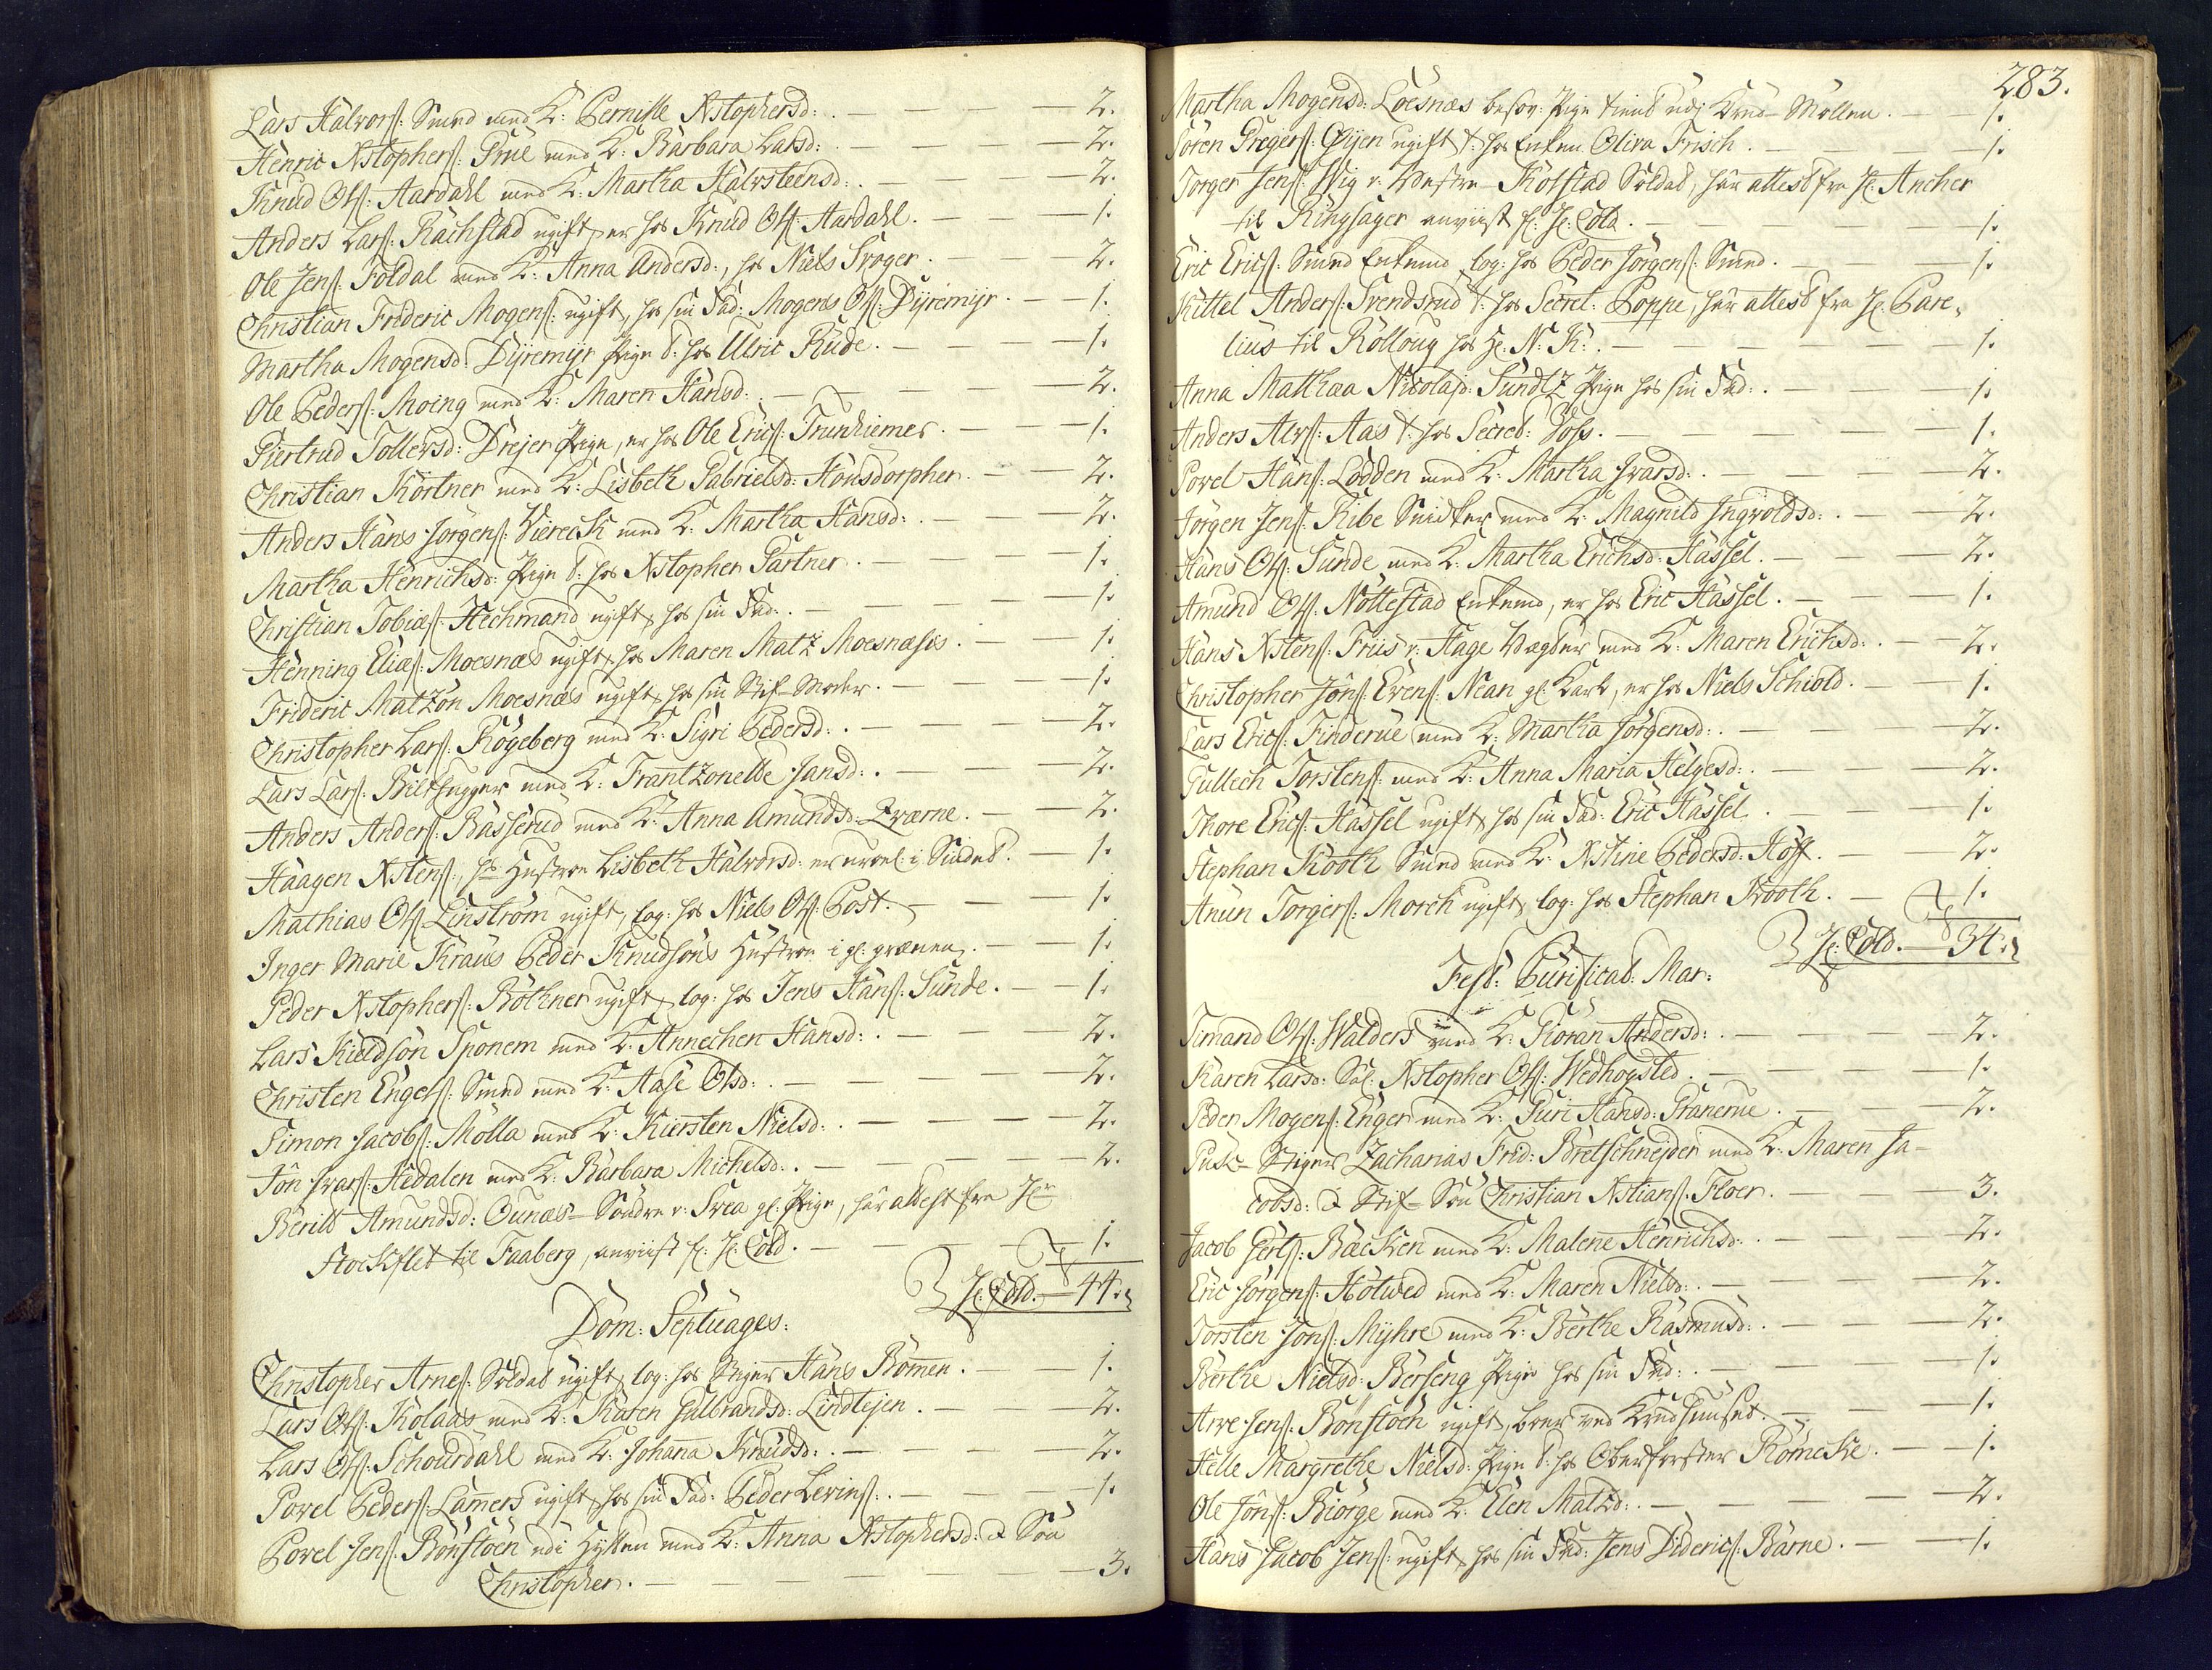 Lars Halvorſ: Smed med K: Pernille Xstophersd: . — — — 2.
Henric Xstopherſ: Prüe med K: Barbara Larsd: — — — 2.
Knud Olſ: Aardahl med K: Martha Halvsteensd: . — — — 2.
Anders Larſ: Rachstad ugift, er hos Knud Olſ: Aardahl. — — — 1.
Ole Jenſ: Foldal med K: Anna Andersd:, hos Niels Trøger. — — 2.
Christian Frideric Mogenſ: ugift, hos sin Fad: Mogens Olſ: Dÿremÿr. — 1.
Martha Mogensd: Dÿremÿr Pige t: hos Ulric Rüde. — — — 1.
Ole Pederſ: Moing med K: Maren Hansd: . — — — 2.
Giertrud Tollevsd: Drejer Pige, er hos Ole Ericſ: Trunhiemer. — — 1.
Christian Körtner med K: Lisbeth Gabrielsd: Honsdorpher. — — 2.
Anders Hans Jørgenſ: Viereck med K: Martha Hansd: . — — 2.
Martha Henrichsd: Pige t: hos Xstopher Gartner. — — — 1.
Christian Tobiæſ: Hechmand ugift, hos sin Fad: . — — — 1.
Henning Eliæſ: Moesnæs ugift, hos Maren Matz Moesnæsis. — 1.
Frideric Matzön Moesnæs ugift, hos sin Stif-Moder. — — — 1.
Christopher Larſ: Røgeberg med K: Sigri Pedersd: . — — — 2.
Lars Larſ: Bilthugger med K: Frantzonette Jansd: . — — 2.
Anders Anderſ: Basserud med K: Anna Amundsd: Qværne. — — 2.
Haagen Xstenſ:, hs Hustroe Lisbeth Halvorsd: er i Sindet. — 1.
Mathias Olſ: Linström ugift, log: hos Niels Olſ: Post. — — 1.
Inger Marie Kraus Peder Knudsøns Hustroe i gl: grænen. — — 1.
Peder Xstopherſ: Böthner ugift, log: hos Jens Hanſ: Sunde. — — 1.
Lars Kieldsön Sponem med K: Annechen Hansd: . — — — 2.
Christen Engelſ: Smed med K: Aase Olsd: . — — — 2.
Simon Jacobſ: Mölla med K: Kiersten Nielsd: . — — — 2.
Jon Ivarſ: Hedalen med K: Barbara Michelsd: . — — — 2.
Berith Amundsd: Ounæs Søndre v: Svea gl: Pige, har attest fra Hr
Stockflet til Faaberg, anviist f: H: Cold. — — — 1.
H: Cold. — 44.
Dom: Septuages:
Christopher Arneſ: Soldat ugift, log: hos Stiger Hans Bömen. — — 1.
Lars Olſ: Kolaas med K: Karen Gulbrandsd: Lindlejen. — — 2.
Lars Olſ: Schourdahl med K: Johana Knudsd: . — — 2.
Povel Pederſ: Lamers ugift, hos sin Fad: Peder Levinſ: . — — 1.
Povel Jenſ: Bönstöen udi Hytten med K: Anna Xstophersd: & Søn
Christopher. — — — — 3.
283.
Martha Mogensd: Loesnæs besov: Pige tient udi Krud-Møllen. — 1.
Søren Gregerſ: Øÿen ugift, t: hos Enken Oliva Frisch. — — 1.
Torger Jenſ: Wig v: Vestre Kolstad Soldat, har attest fra H: Ancher
til Ringsager anviist f: H: Cold. — — — 1.
Eric Ericſ: Smed Enkemd, log: hos Peder Jørgenſ: Smed. — — 1.
Kittel Anderſ: Svendsrud t: hos Secret: Poppe, har attest fra H: Pare,
lius til Rolloug hos H: N: K: . — — — 1.
Anna Mathæa Nicolajd: Sundtz Pige hos sin Fad: . — — — 1.
Anders Alvſ: Aas t: hos Secret: Voss. — — — 1.
Povel Hanſ: Lodden med K: Martha Ivarsd: . — — — 2.
Jørgen Jenſ: Ribe Snidker med K: Magnild Ingvoldsd: . — — 2.
Hans Olſ: Sunde med K: Martha Erichsd: Hassel. — — — 2.
Amund Olſ: Nöttestad Enkemd, er hos Eric Hassel. — — 1.
Hans Xstenſ: Friis v: Hage Vægter med K: Maren Erichsd: . — 2.
Christopher Jonſ: Evenſ: Nean gl: Karl, er hos Niels Schiold. — 1.
Lars Ericſ: Finderue med K: Martha Jørgensd: . — — 2.
Gullech Torstenſ: med K: Anna Maria Helgesd: . — — 2.
Thore Ericſ: Hassel ugift, hos sin Fad: Eric Hassel. — — 1.
Stephan Kooth Smed med K: Xstine Pedersd: Hoff. — — 2.
Anun Torgerſ: Morch ugift, log: hos Stephan Kooth. — 1.
H: Cold. — 34.
Fest: Purificat: Mar:
Simand Olſ: Walders med K: Goran Andersd: . — — 2.
Karen Larsd: Sal: Xstopher Olſ: Wedhogsted. — — — 1.
Peder Mogenſ: Enger med K: Guri Hansd: Granerue. — — 2.
Puk-Stiger Zacharias Frid: Bretschnejder med K: Maren Ja-
cobsd: & Stif-Søn Christian Xstianſ: Floer. — — 3.
Jacob Gertſ: Bæcken med K: Malene Henrichsd: . — — 2.
Eric Jörgenſ: Holwed med K: Maren Nielsd: . — — — 2.
Torsten Jonſ: Mÿhre med K: Berthe Rasmusd: . — — — 2.
Berthe Nielsd: Berseng Pige hos sin Fad: . — — — 1.
Arve Jenſ: Bonstöen ugift, boer ved Krudhuuset. — — 1.
Helle Margrethe Nielsd: Pige t: hos Oberforster Römcke. — — 1.
Ole Jonſ: Biørge med K: Elen Matzd: . — — — 2.
Hans Jacob Jenſ: ugift, hos sin Fad: Jens Didericſ: Barne. — — 1.